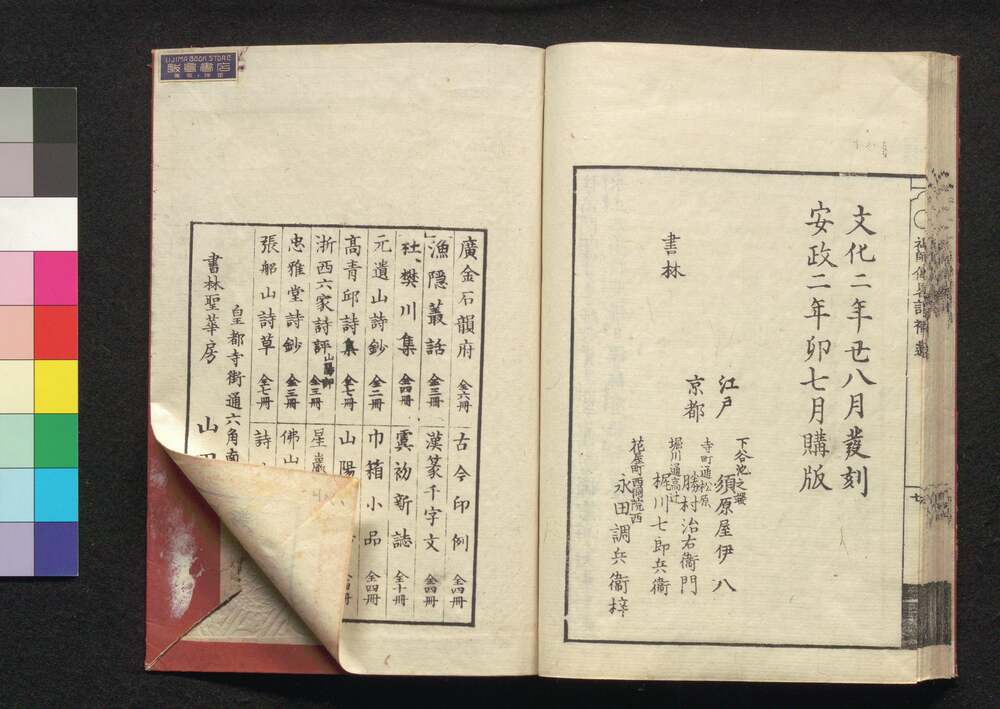 文化二年丑八月發刻
安政二年卯七月購版
書林
江戸
下谷池之端
須原屋伊八
京都
寺町通松原
勝村治右衞門
堀川通高辻
梶川七郎兵衞
花屋町西洞院西
永田調兵衞梓
IIJIMA BOOK STORE
飯島書店
廣金石韻府 全六冊
古今印例 全四冊
漁隱叢話 全三冊
漢篆千字文 全四冊
杜樊川集 全四冊
虞初新誌 全十冊
元遺山詩鈔 全二冊
巾箱小品 全四冊
高青邱詩集 全七冊
山陽
浙西六家詩評 山陽郎 全三冊
星巖
忠雅堂詩鈔 全三冊
佛山
張船山詩草 全七冊
詩
皇都寺街通六角南
書林聖華房 山田